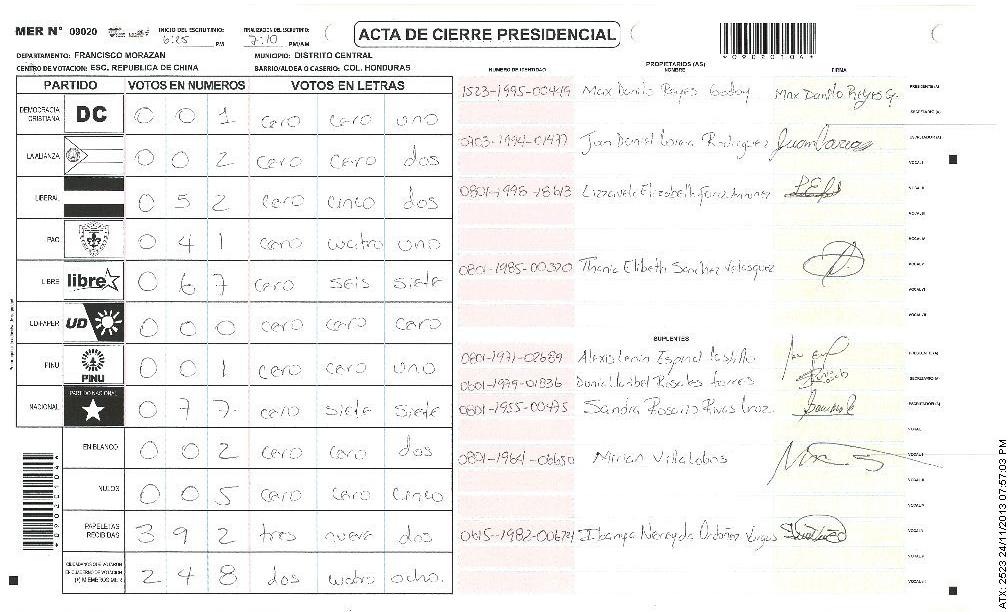 MER N° 09020
INICIO DEL ESCRUTINIO: 6:25 PM
FINALIZACION DEL ESCRUTINIO: 7:10 PM/AM
ACTA DE CIERRE PRESIDENCIAL
DEPARTAMENTO: FRANCISCO MORAZAN
MUNICIPIO: DISTRITO CENTRAL
CENTRO DE VOTACION: ESC. REPUBLICA DE CHINA
BARRIO/ALDEA O CASERIO: COL. HONDURAS
PARTIDO VOTOS EN NUMEROS VOTOS EN LETRAS
DEMOCRACIA CRISTIANA DC 0 0 1 cero cero uno
LA ALIANZA 0 0 2 cero cero dos
LIBERAL 0 5 2 cero cinco dos
PAC 0 4 1 cero cuatro uno
LIBRE libre 0 6 7 cero seis siete
UD-FAPER UD 0 0 0 cero cero cero
PINU PINU 0 0 1 cero cero uno
NACIONAL PARTIDO NACIONAL 0 7 7 cero siete siete
EN BLANCO 0 0 2 cero cero dos
NULOS 0 0 5 cero cero cinco
PAPELETAS RECIBIDAS 3 9 2 tres nueve dos
CIUDADANOS QUE VOTARON EN CUADERNO DE VOTACION (+) MIEMBROS MER 2 4 8 dos cuatro ocho.
PROPIETARIOS (AS)
NUMERO DE IDENTIDAD NOMBRE FIRMA
1523-1995-00449 Max Danilo Reyes Godoy Max Danilo Reyes G. PRESIDENTE (A)
SECRETARIO (A)
0703-1994-01477 Juan Daniel Rodriguez ESCRUTADOR (A)
VOCAL I
0801-1998-18613 Elizabeth VOCAL II
VOCAL III
VOCAL IV
0801-1985-00320 Thania Elibeth Sanchez Velasquez VOCAL V
VOCAL VI
VOCAL VII
SUPLENTES
0801-1971-02689 Alexis Lenin Espinal Castillo PRESIDENTE (A)
0801-1979-01836 Maribel Rosales Torres SECRETARIO (A)
0801-1955-00475 Sandra Rosario Rivas Cruz ESCRUTADOR (A)
VOCAL I
0801-1964-06650 Mirian Villalobos VOCAL II
VOCAL III
VOCAL IV
0615-1982-00674 Nereyda Ordoñez Vargas VOCAL V
VOCAL VI
VOCAL VII
ATX: 2523 24/11/2013 07:57:03 PM